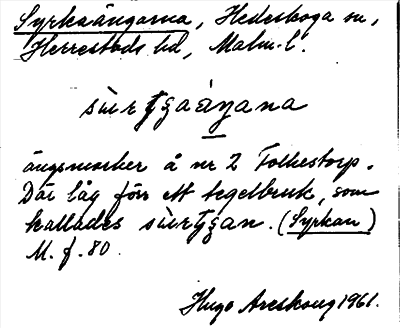 Syrkaängarna, Hedeskoga sn,
Herrestads hd, Malm. l.
sùrʈʒaáŋana
ängsmarker å nr 2 Folkestorp.
Där låg förr ett tegelbruk, som
kallades sùrʈʒan. (Syrkan)
M. f. 80.
Hugo Areskoug 1961.